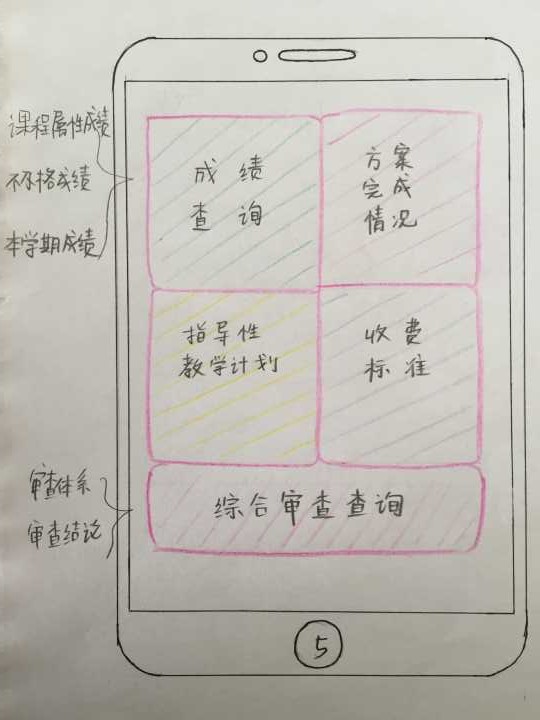 课程属性成绩
不及格成绩
本学期成绩
成绩
查询
方案
完成
情况
指导性
教学计划
收费
标准
审查体系
审查结论
综合审查查询
5